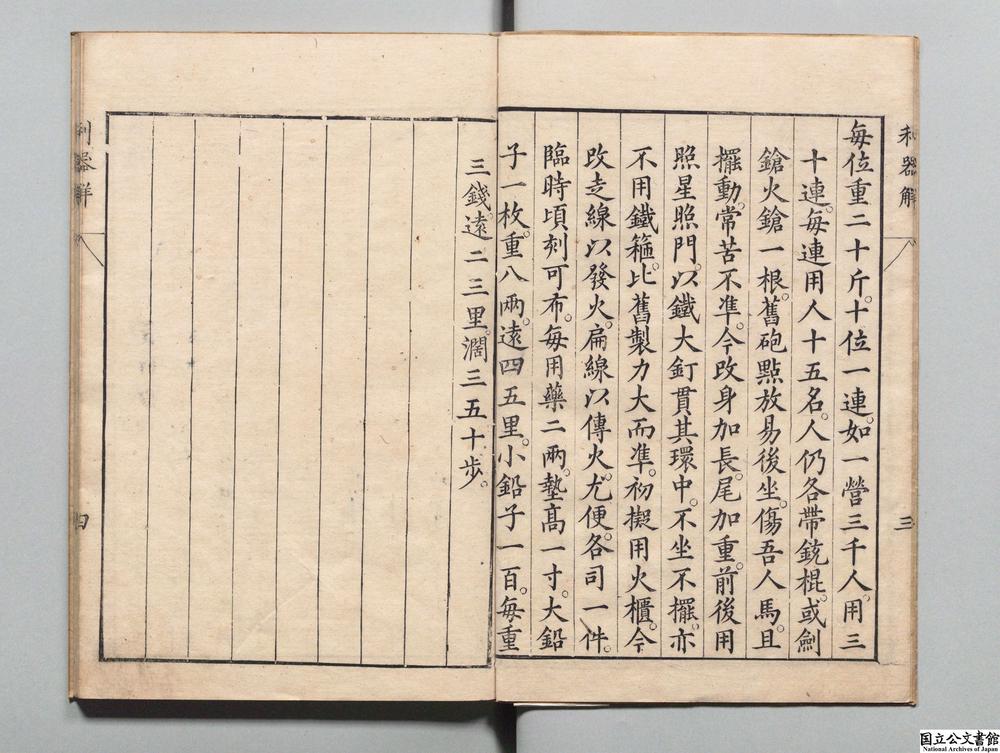 利器解
三
每位重二十斤。十位一連。如一營三千人。用三
十連。每連用人十五名。人仍各帶銃棍。或劍
鎗火鎗一根。舊砲點放易後坐。傷吾人馬。且
擺動。常苦不準。今改身加長。尾加重。前後用
照星照門。以鐵大釘貫其環中。不坐不擺。亦
不用鐵箍。比舊製力大而準。初擬用火櫃。今
改走線以發火。扁線以傳火。尤便。各司一件。
臨時頃刻可布。每用藥二兩。墊高一寸。大鉛
子一枚。重八兩。遠四五里。小鉛子一百。每重
三錢。遠二三里。濶三五十步。
利器解
四
国立公文書館
National Archives of Japan